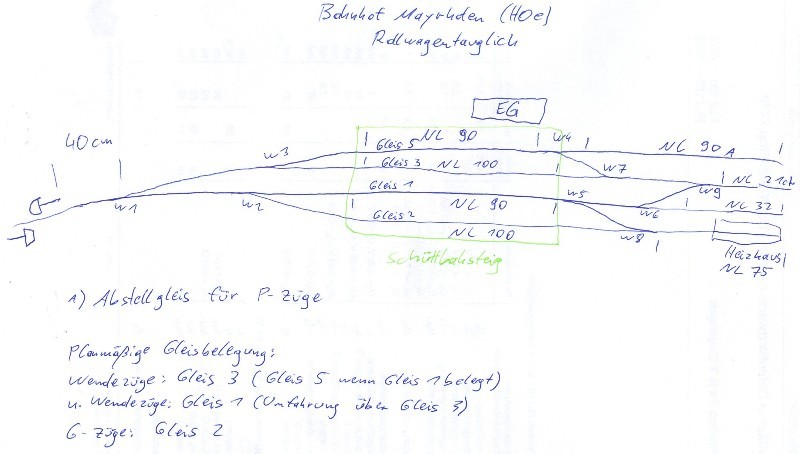 Bahnhof Mayrhofen (H0e)
Rollwagentauglich
EG
40cm
W3
Gleis 5 NL 90
W4
NL 90 A
Gleis 3 NL 100
W7
NL 21cm
W9
W1
W2
Gleis 1
NL 90
W5
W6
NL 32
Gleis 2
NL 100
W8
Heizhaus
NL 75
Schüttbahsteig
1) Abstellgleis für P-Züge
Planmäßige Gleisbelegung:
Wendezüge: Gleis 3 (Gleis 5 wenn Gleis 1 belegt)
n. Wendezüge: Gleis 1 (Umfahrung über Gleis 3)
G-Züge: Gleis 2